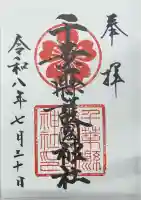 奉拝
千葉縣護國神社
令和八年七月三十日